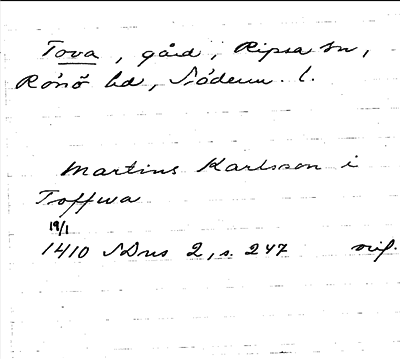 Tova, gård, Ripsa sn,
Rönö hd, Söderm. l.
Martinus Karlsson i
Toffwa
19/1
1410 SDns 2, s. 247 orig.